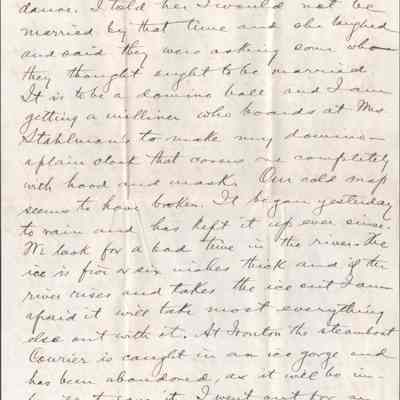 dance. I told her I would not be
married by that time and she laughed
and said they were asking some who
they thought ought to be married.
It is to be a domino ball and I am
getting a milliner who boards at Mrs
Stahlman's to make my domino—
a plain cloak that covers one completely
with hood and mask. Our cold snap
seems to have broken. It began yesterday
to rain and has kept it up ever since.
We look for a bad time in the river. The
ice is five or six inches thick and if the
river rises and takes the ice out I am
afraid it will take most everything
else out with it. At Ironton the steamboat
Courier is caught in an ice gorge and
has been abandoned, as it will be im-
I went out for an